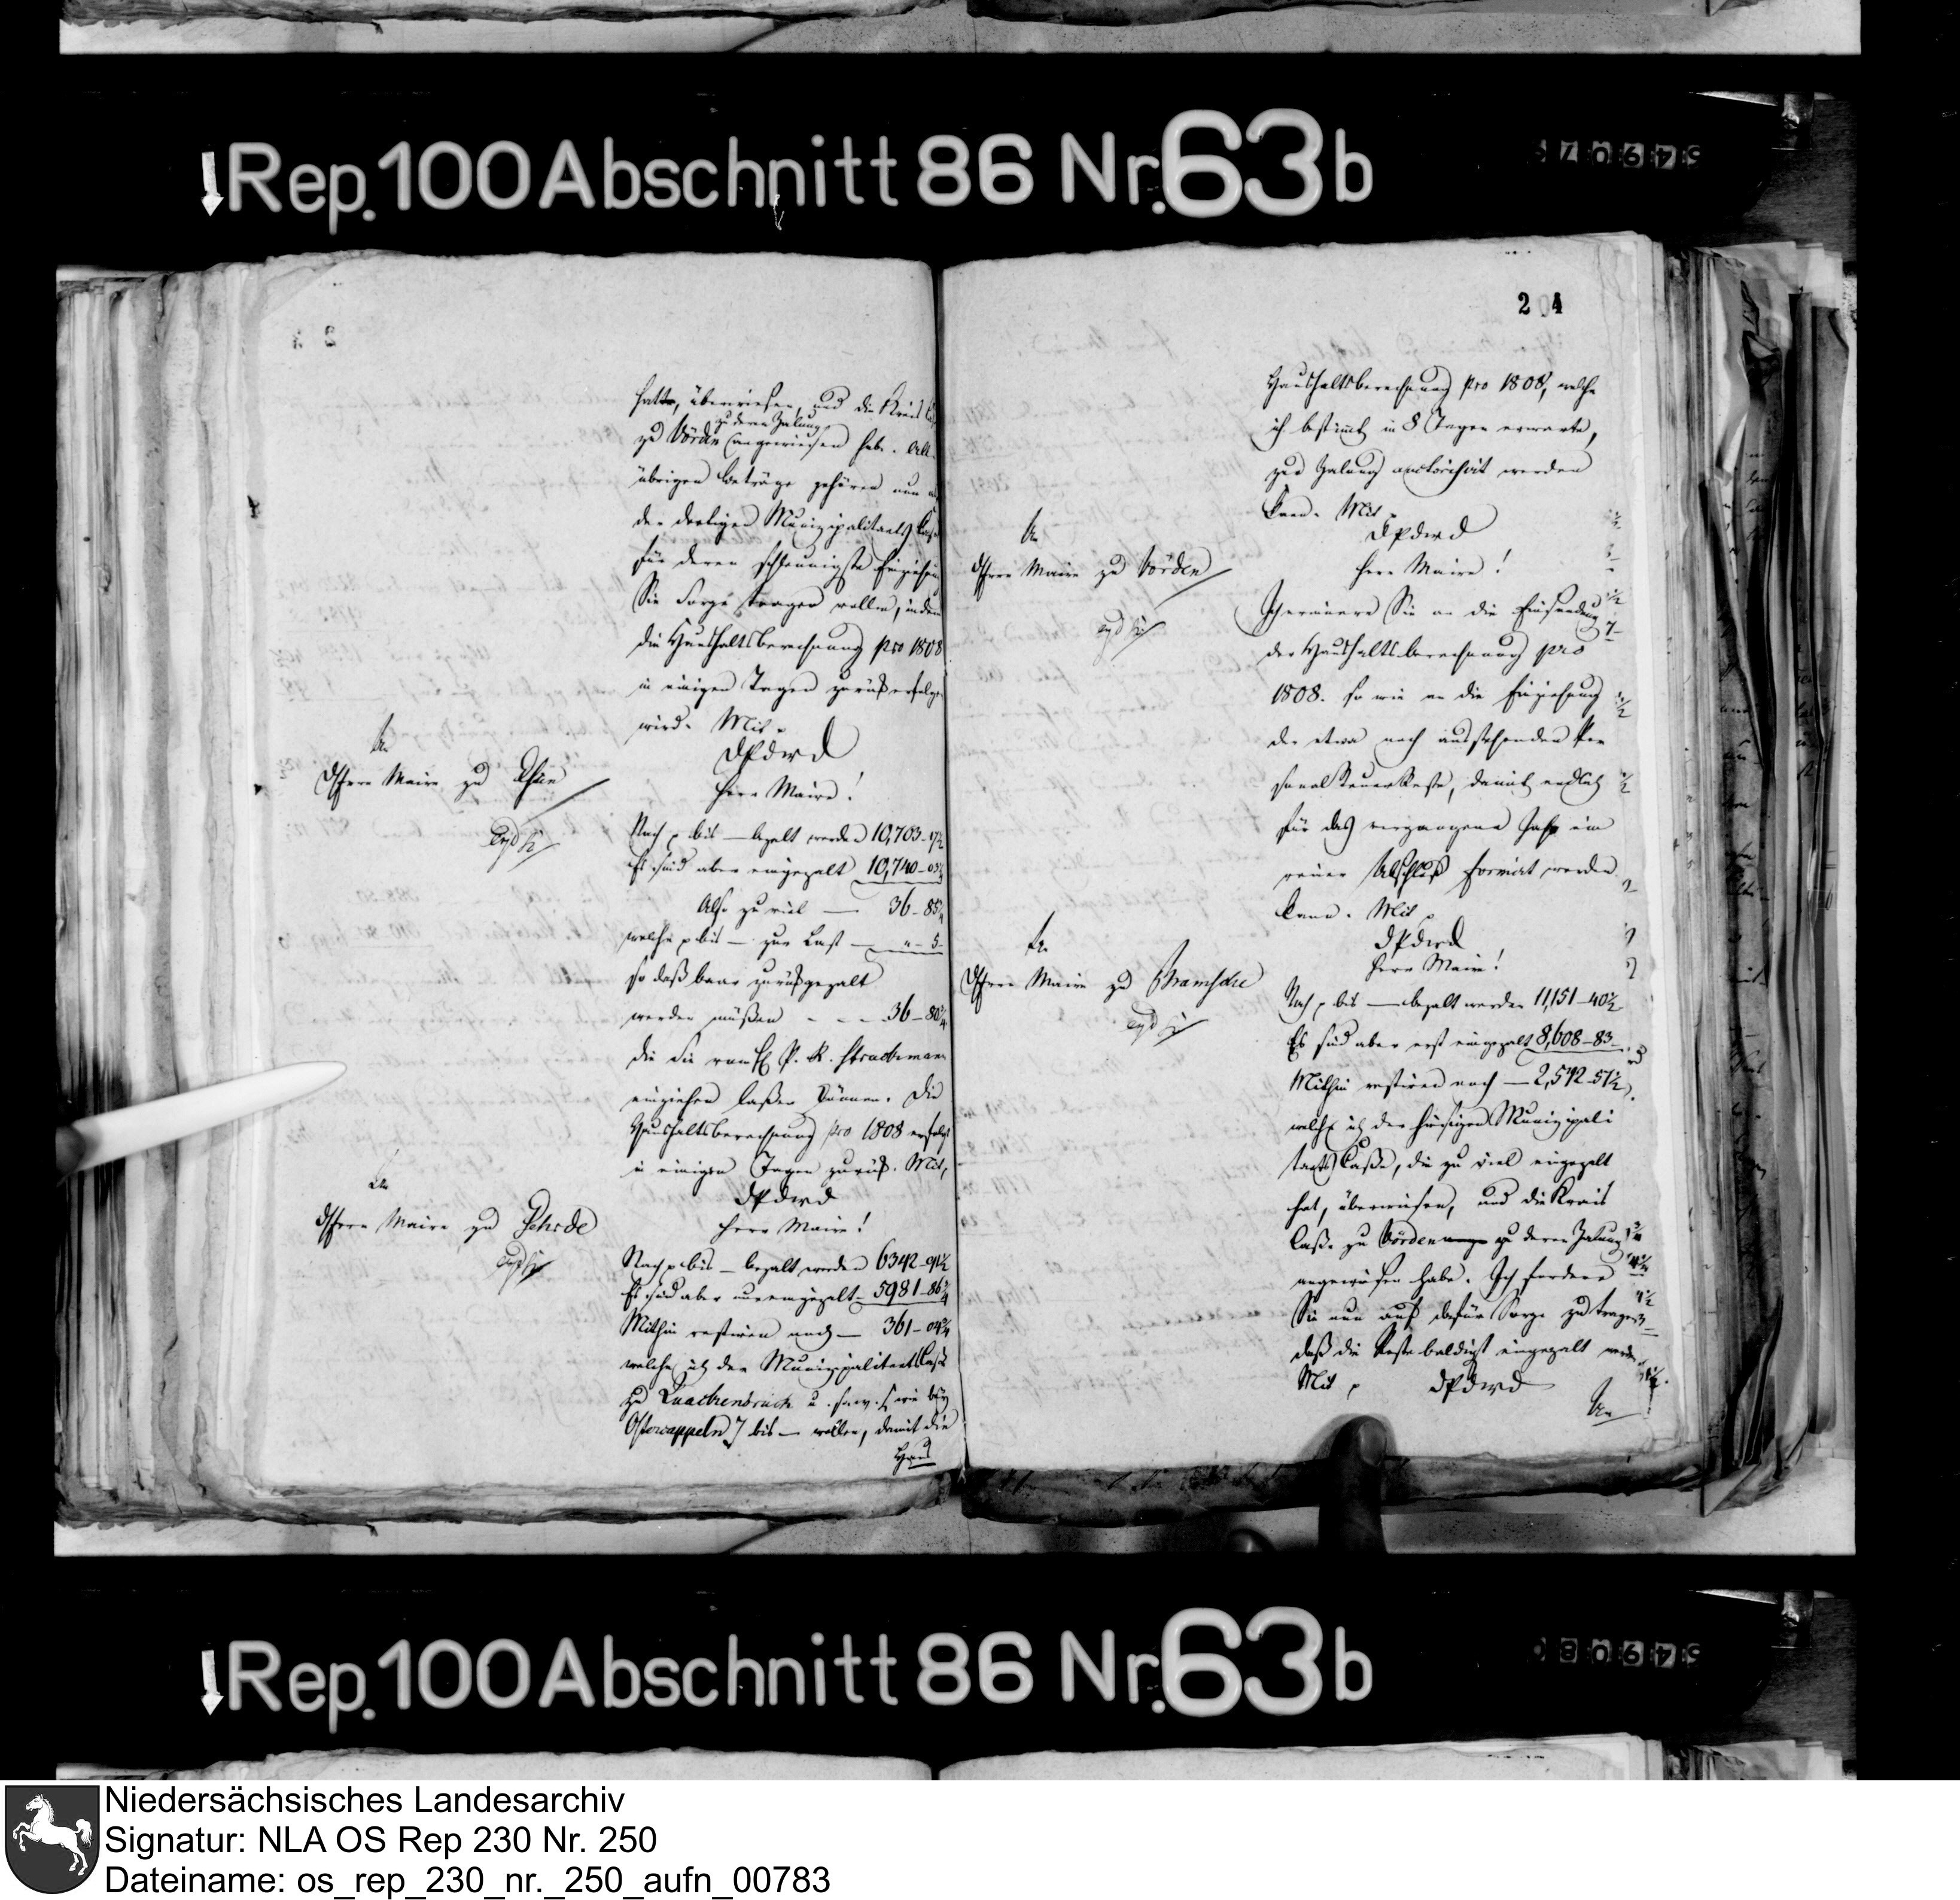 Rep. 100 Abschnitt 86 Nr. 63b
649079
204
hatte, überwiesen, und die Kreis Caße
zu deren Zalung
zu Vörden angewiesen habe. Alle
übrigen Beträge gehören nun an
der dortigen Munizipalitaets Caße
für deren schleunigste Einziehung
Sie Sorge tragen wollen, indem
die Haushaltsberechnung pro 1808
in einigen Tagen zurück erfolgen
wird. Mit
DPdwd
An
dHerrn Maire zu
Herr Maire!
Nach p bis — bezalt werden 10,703-17½
Es sind aber eingezalt 10,740-03¼
Also zu viel — 36-85¾
welche p bis — zur Last — "-5-
so daß baar zurückgezalt
werden müßen - - - 36-80¾
die Sie vom H. P. R. Struckmann
einziehen laßen können. Die
Haushaltsberechnung pro 1808 erfolgt
in einigen Tagen zurück. Mit
DPdwd
An
dHerrn Maire zu Gehrde
Herr Maire!
Nach p bis — bezalt werden 6342-91½
Es sind aber nur eingezalt - 5981-86¾
Mithin restiren noch — 361-04¾
welche ich der Munizipalitaets Caße
zu Quackenbrück u. s. w. [wie bey
Ostercappeln] bis — wollen, damit die
Haus
Haushaltsberechnung pro 1808, welche
ich bestimmt in 8 Tagen erwarte,
zur Zalung autorisirt werden
kann. Mit
DPdwd
An
dHerrn Maire zu Vörden
Herr Maire!
Ich erinnere Sie an die Einsendung
der Haushaltsberechnung pro
1808. so wie an die Einziehung
der etwa noch ausstehenden Per
sonalSteuerReste, damit endlich
für das vergangene Jahr ein
reiner Abschluß formirt werden
kann. Mit
DPdwd
An
dHerrn Maire zu Bramsche
Herr Maire!
Nach p bis — bezalt werden 11,151-40½
Es sind aber erst eingezalt 8,608-83-
Mithin restiren noch — 2,542-57½
welche ich der hiesigen Munizipali
taets Caße, die zu viel eingezalt
hat, überwiesen, und die Kreis
Caße zu Vörden zu deren Zalung
angewiesen habe. Ich fordere
Sie nun auf dafür Sorge zu tragen
daß die Reste baldigst eingezalt werden
Mit p DPdwd
An
Rep. 100 Abschnitt 86 Nr. 63b
649080
Niedersächsisches Landesarchiv
Signatur: NLA OS Rep 230 Nr. 250
Dateiname: os_rep_230_nr._250_aufn_00783